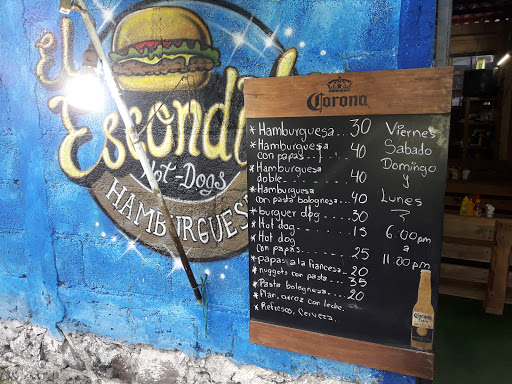 El
Escondi
Hot-Dogs
HAMBURGUES
Corona
* Hamburguesa... 30
* Hamburguesa
con papas... 40
* Hamburguesa
doble... 40
* Hamburguesa
con pasta bolognesa... 40
* burguer dog... 30
* Hot dog... 15
* Hot dog
con papas... 25
* papas a la francesa... 20
* nuggets con pasta... 35
* Pasta bolognesa... 20
* Flan, arroz con leche.
* Refresco, Cerveza.
Viernes
Sabado
Domingo
y
Lunes
6:00 pm
a
11:00 pm
Corona